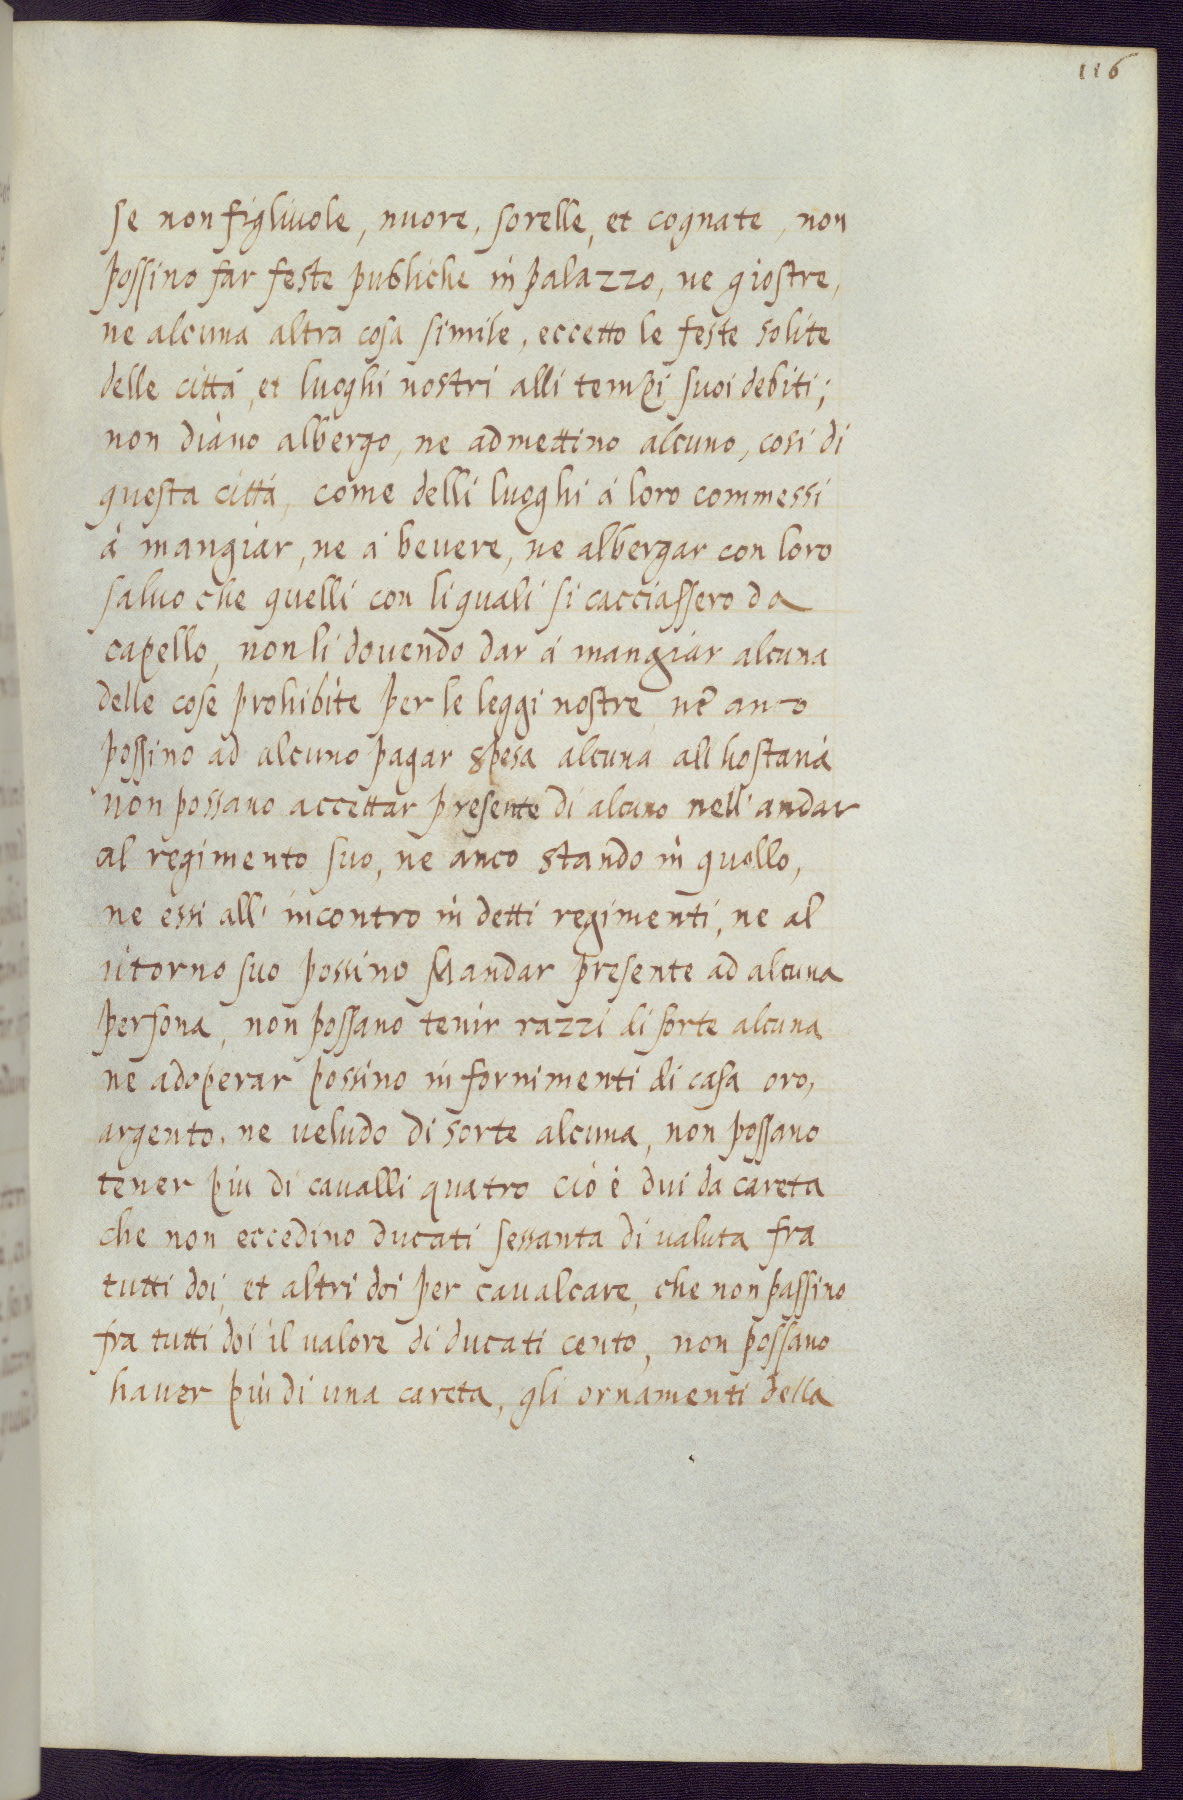 116
se non figliuole, nuore, sorelle, et cognate, non
possino far feste publiche in palazzo, ne giostre,
ne alcuna altra cosa simile, eccetto le feste solite
delle cittá, et luoghi nostri alli tempi suoi debiti;
non diano albergo, ne admettino alcuno, cosi di
questa cittá, come delli luoghi á loro commessi
á mangiar, ne á beuere, ne albergar con loro
saluo che quelli con li quali si cacciassero da
capello, non li douendo dar á mangiar alcuna
delle cose prohibite per le leggi nostre ne anco
possino ad alcuno pagar spesa alcuna all hostaria
non possano accettar presente di alcuno nell' andar
al regimento suo, ne anco stando in quello,
ne essi all' incontro in detti regimenti, ne al
ritorno suo possino Mandar presente ad alcuna
persona, non possano tenir razzi di sorte alcuna
ne adoperar possino in fornimenti di casa oro,
argento, ne veludo di sorte alcuna, non possano
tener piu di caualli quatro ció é dui da careta
che non eccedino ducati sessanta di valuta fra
tutti doi, et altri doi per caualcare, che non passino
fra tutti doi il valore di ducati cento, non possano
hauer piú di una careta, gli ornamenti della